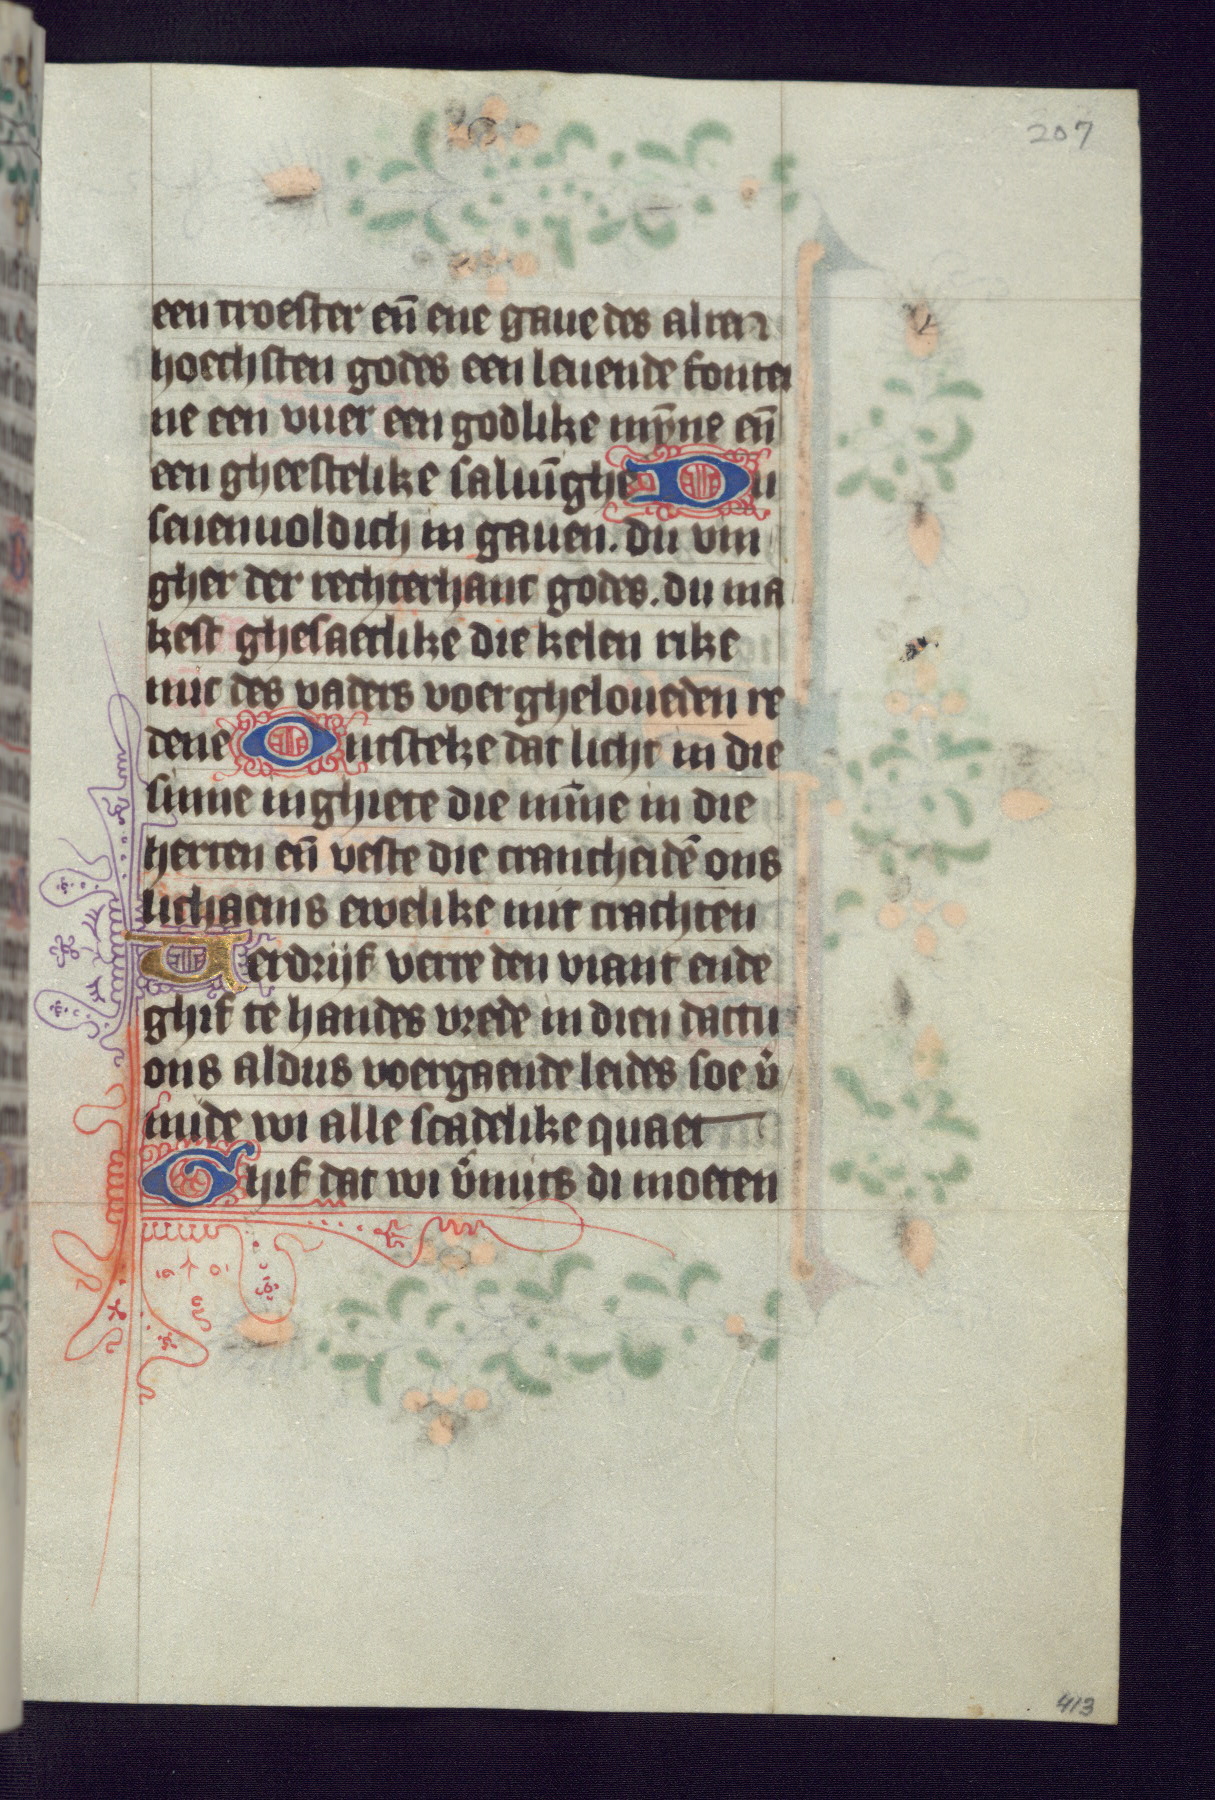 207
een troester en̄ ene gaue des alren
hoechsten godes een leuende fontei
ne een vuer een godlike mȳne en̄
een gheestelike saluīghe Du
seuenuoldich in gauen. du vin
gher der rechterhant godes. du ma
kest ghesaetlike die kelen rike
mit des vaders voergheloueden re
dene Ontsteke dat licht in die
sinne inghiete die mīne in die
herten en̄ veste die cranchedē ons
lichaems ewelike mit crachten
Verdrijf verre den viant ende
ghif te handes vrede in dien dattu
ons aldus voergaende leides soe v̄
mide wi alle scadelike quaet
Ghif dat wi v̄mits di moeten
413